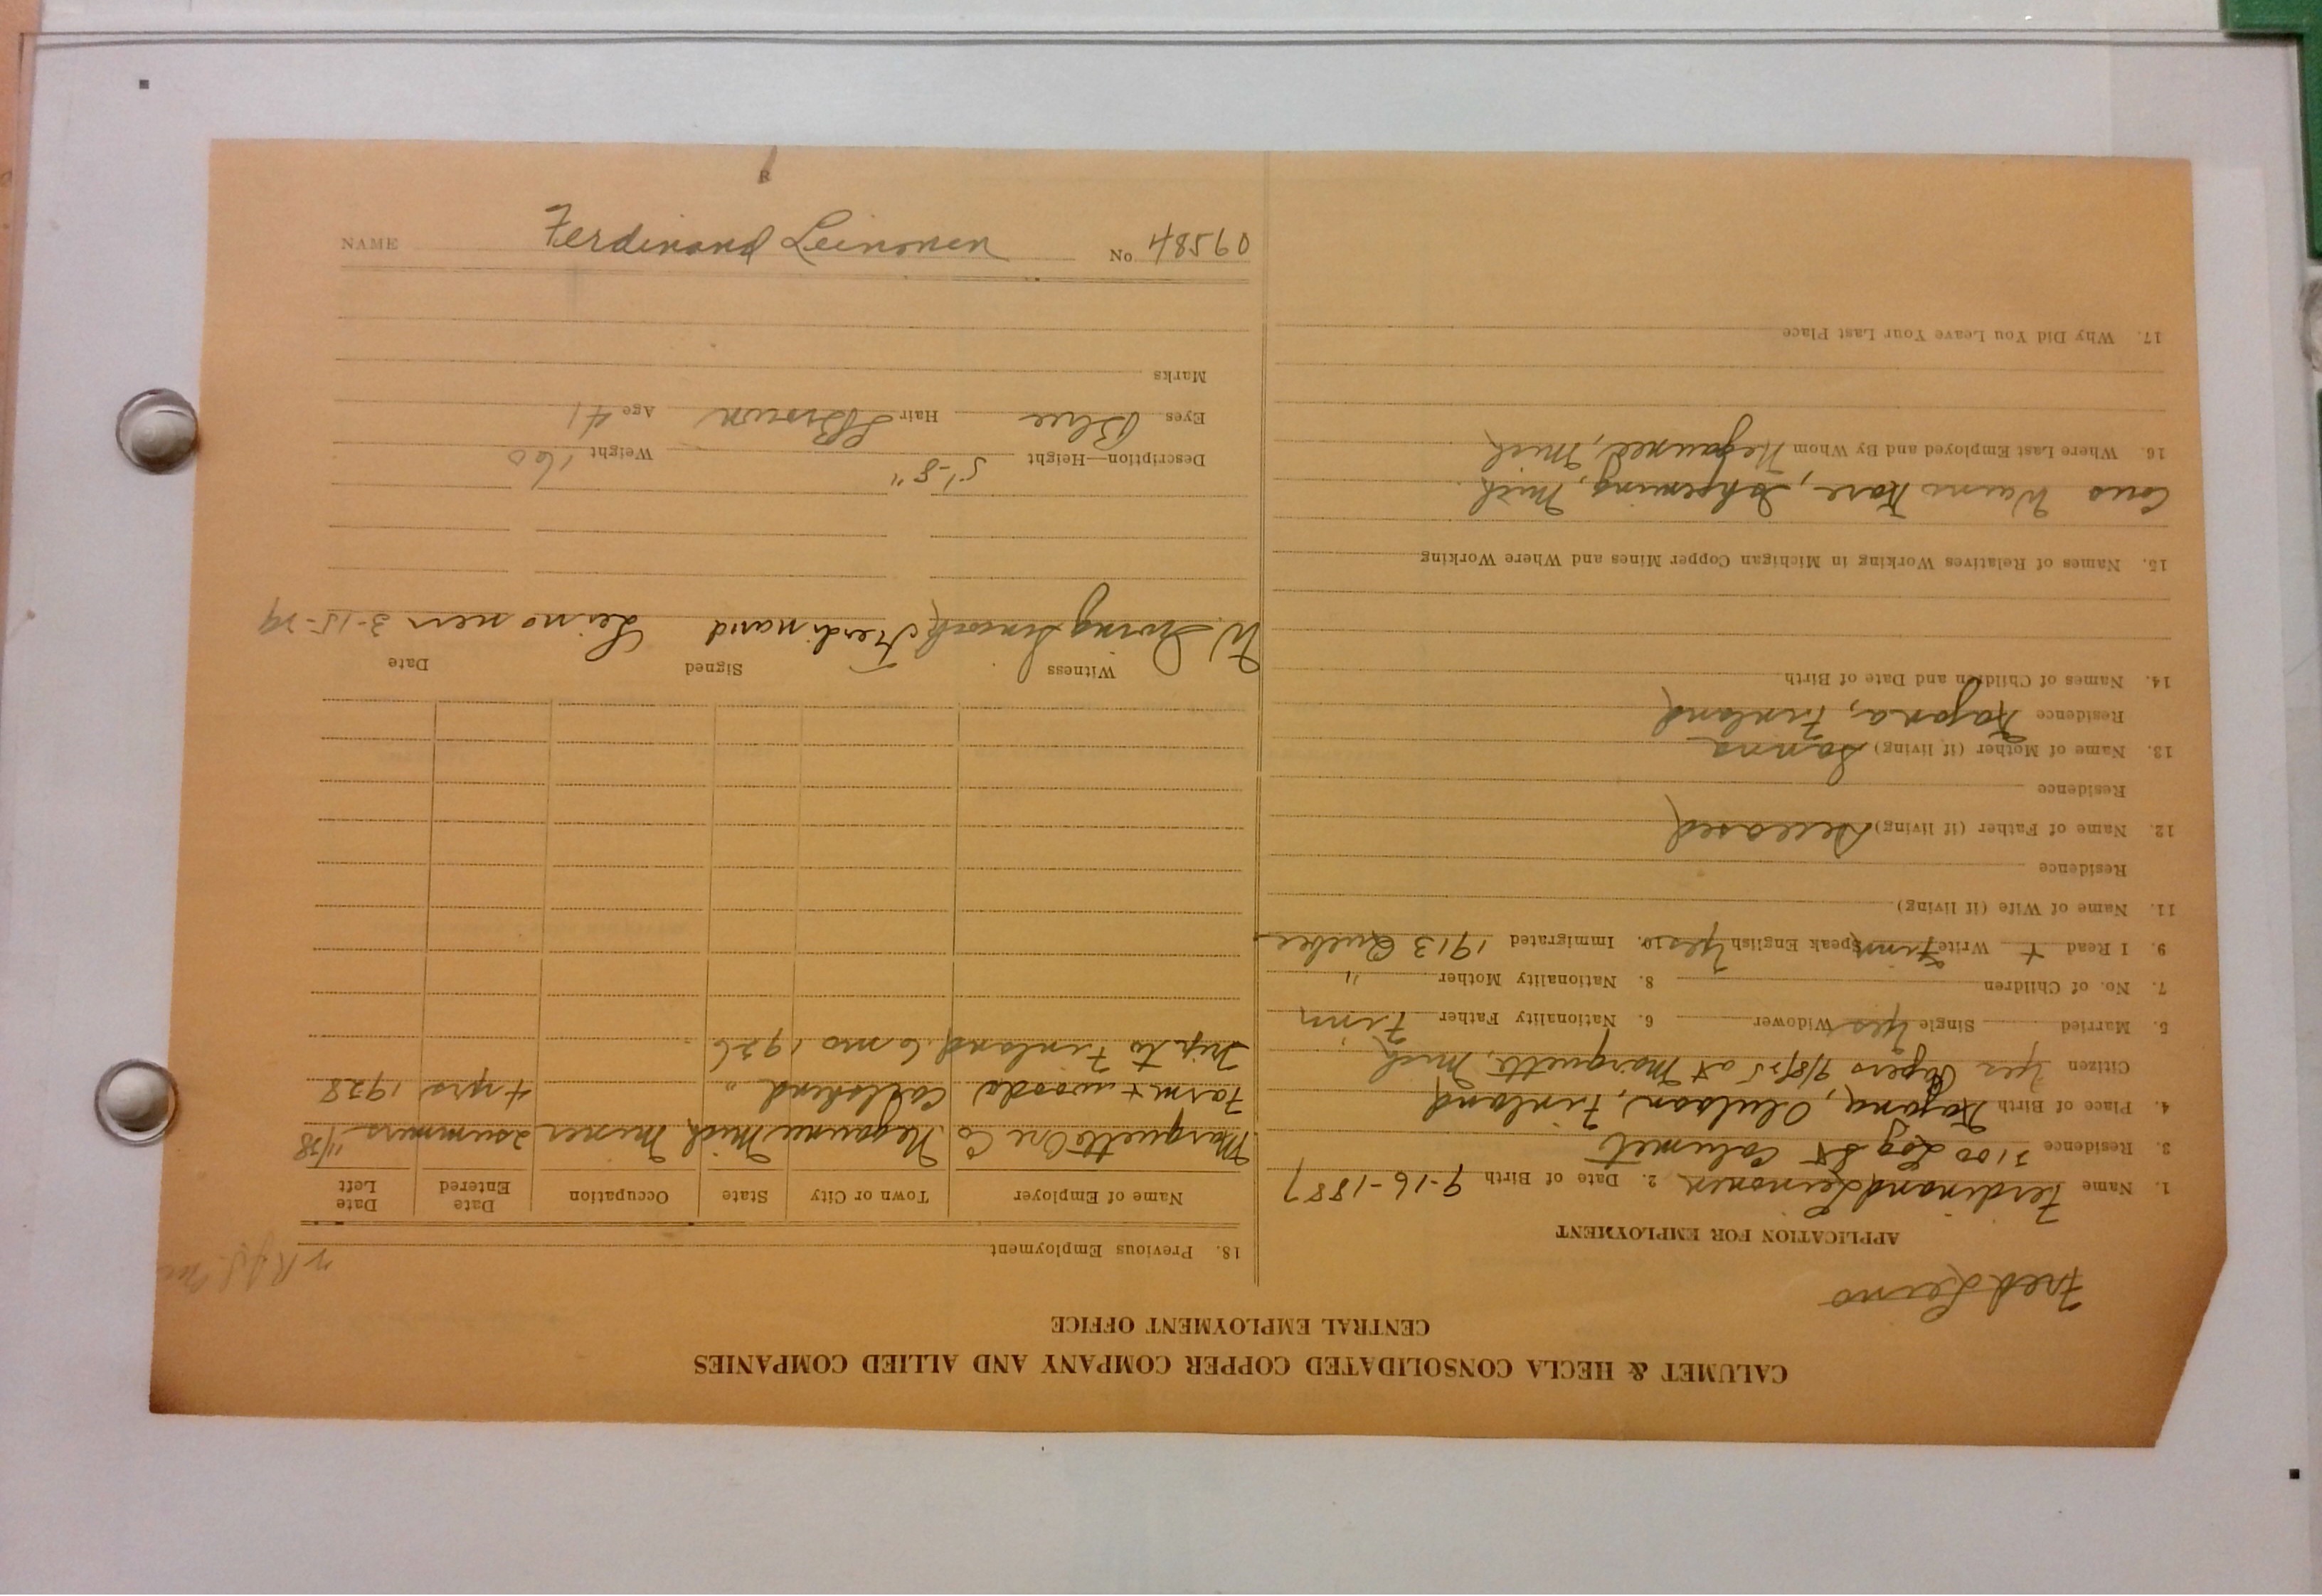 CALUMET & HECLA CONSOLIDATED COPPER COMPANY AND ALLIED COMPANIES
CENTRAL EMPLOYMENT OFFICE
Fred Leino
APPLICATION FOR EMPLOYMENT
1. Name Ferdinand Leinonen 2. Date of Birth 9-16-1887
3. Residence 3100 Log St Calumet
4. Place of Birth Kajana, Oulu, Finland
Citizen Yes Papers 9/8/25 at Marquette, Mich
5. Married Single Yes Widower 6. Nationality Father Finn
7. No. of Children 8. Nationality Mother "
9. I Read + Write Finn Speak English Yes 10. Immigrated 1913 Quebec
11. Name of Wife (if living)
Residence
12. Name of Father (if living) Deceased
Residence
13. Name of Mother (if living) Sanna
Residence Kajana, Finland
14. Names of Children and Date of Birth
15. Names of Relatives Working in Michigan Copper Mines and Where Working
Cous Waino Kare, Ishpeming, Mich.
16. Where Last Employed and By Whom Negaunee, Mich
17. Why Did You Leave Your Last Place
18. Previous Employment
Name of Employer Town or City State Occupation Date Entered Date Left
Marquette Ore Co Negaunee Mich Miner 2 summers 11/28
Farm + woods " 4 yrs 1928
Trip to Finland 6 mo 1926
Witness Signed Date
W. Ferdinand Leinonen 3-15-29
Description—Height 5'-8" Weight 160
Eyes Blue Hair Brown Age 41
Marks
R
NAME Ferdinand Leinonen No. 48560